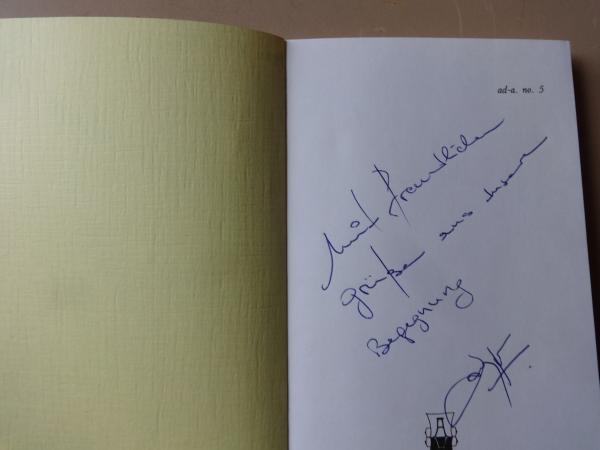 ad-a. no. 5
Mit freundlichen
Grüßen aus unserer
Begegnung